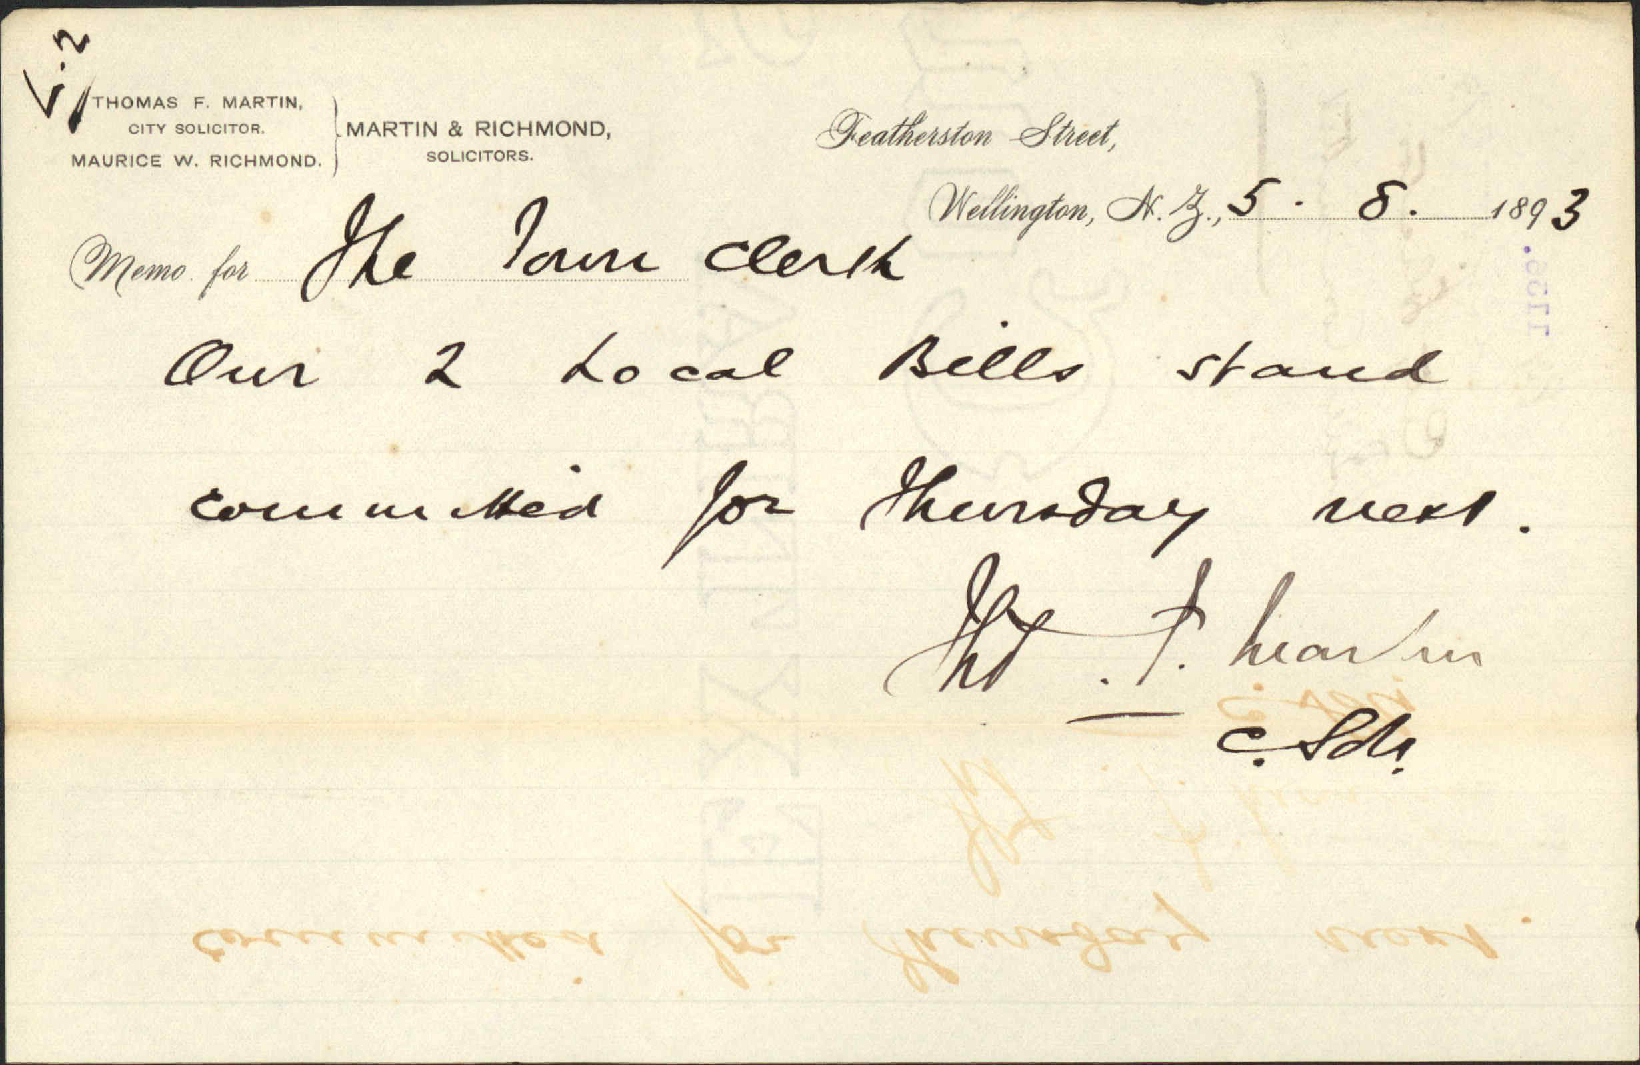 THOMAS F. MARTIN,
CITY SOLICITOR.
MAURICE W. RICHMOND.
MARTIN & RICHMOND,
SOLICITORS.
Featherston Street,
Wellington, N.Z., 5. 8. 1893
Memo for The Town Clerk
Our 2 Local Bills stand
committed for Thursday next.
Tho. F. Martin
C. Solr.